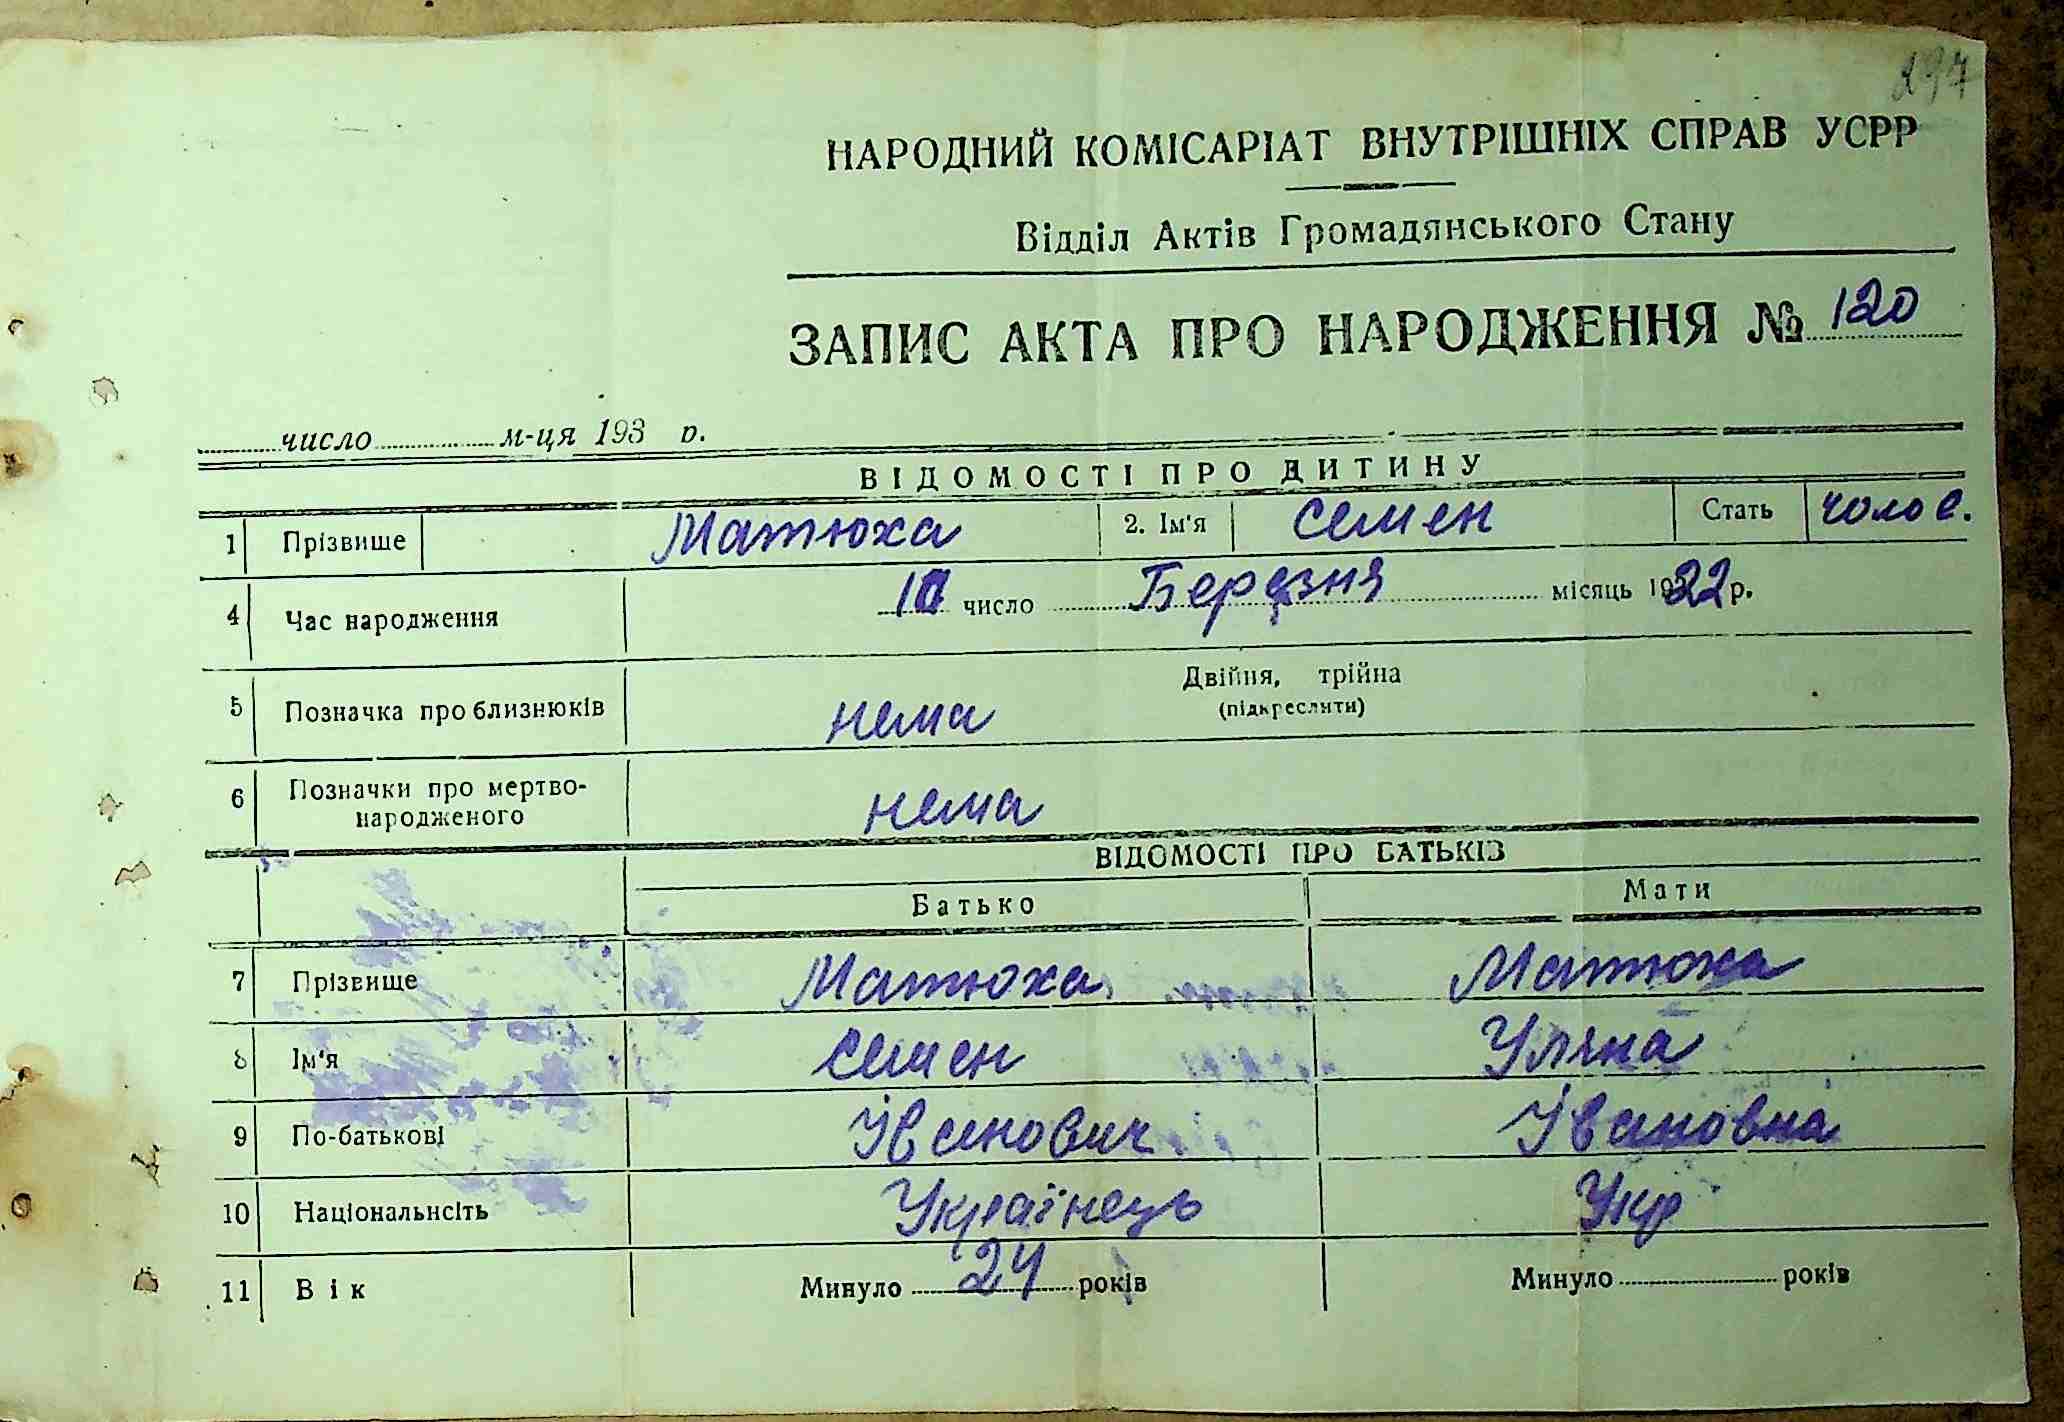 297
НАРОДНИЙ КОМІСАРІАТ ВНУТРІШНІХ СПРАВ УСРР
Відділ Актів Громадянського Стану
ЗАПИС АКТА ПРО НАРОДЖЕННЯ № 120
число м-ця 193 р.
ВІДОМОСТІ ПРО ДИТИНУ
1 Прізвище Матюха 2. Ім'я Семен Стать чолов.
4 Час народження число Березня місяць 1922 р.
5 Позначка про близнюків нема Двійня, трійна
(підкреслити)
6 Позначки про мертво-
народженого нема
ВІДОМОСТІ ПРО БАТЬКІВ
Батько Мати
7 Прізвище Матюха Матюха
8 Ім'я Семен Уляна
9 По-батькові Іванович Івановна
10 Національнсіть Українець Укр
11 Вік Минуло 24 років Минуло років